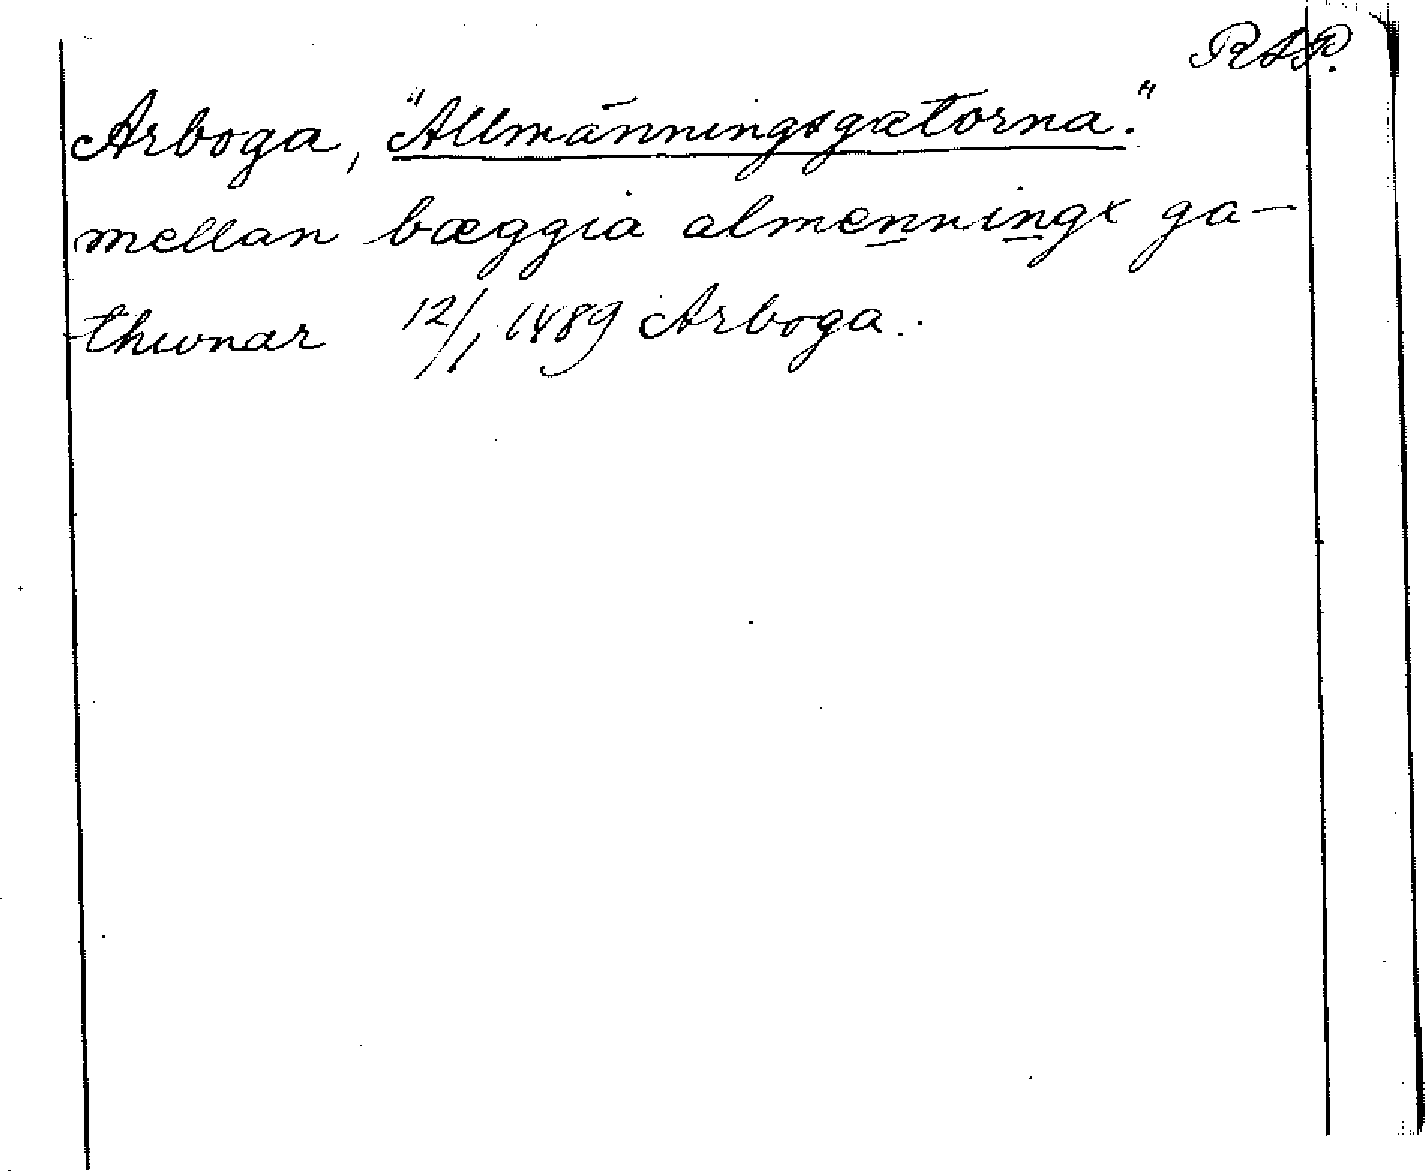 RAP.
Arboga, "Allmänningsgatorna."
mellan bæggia almenningx ga-
thwnar 12/1 1489 Arboga.